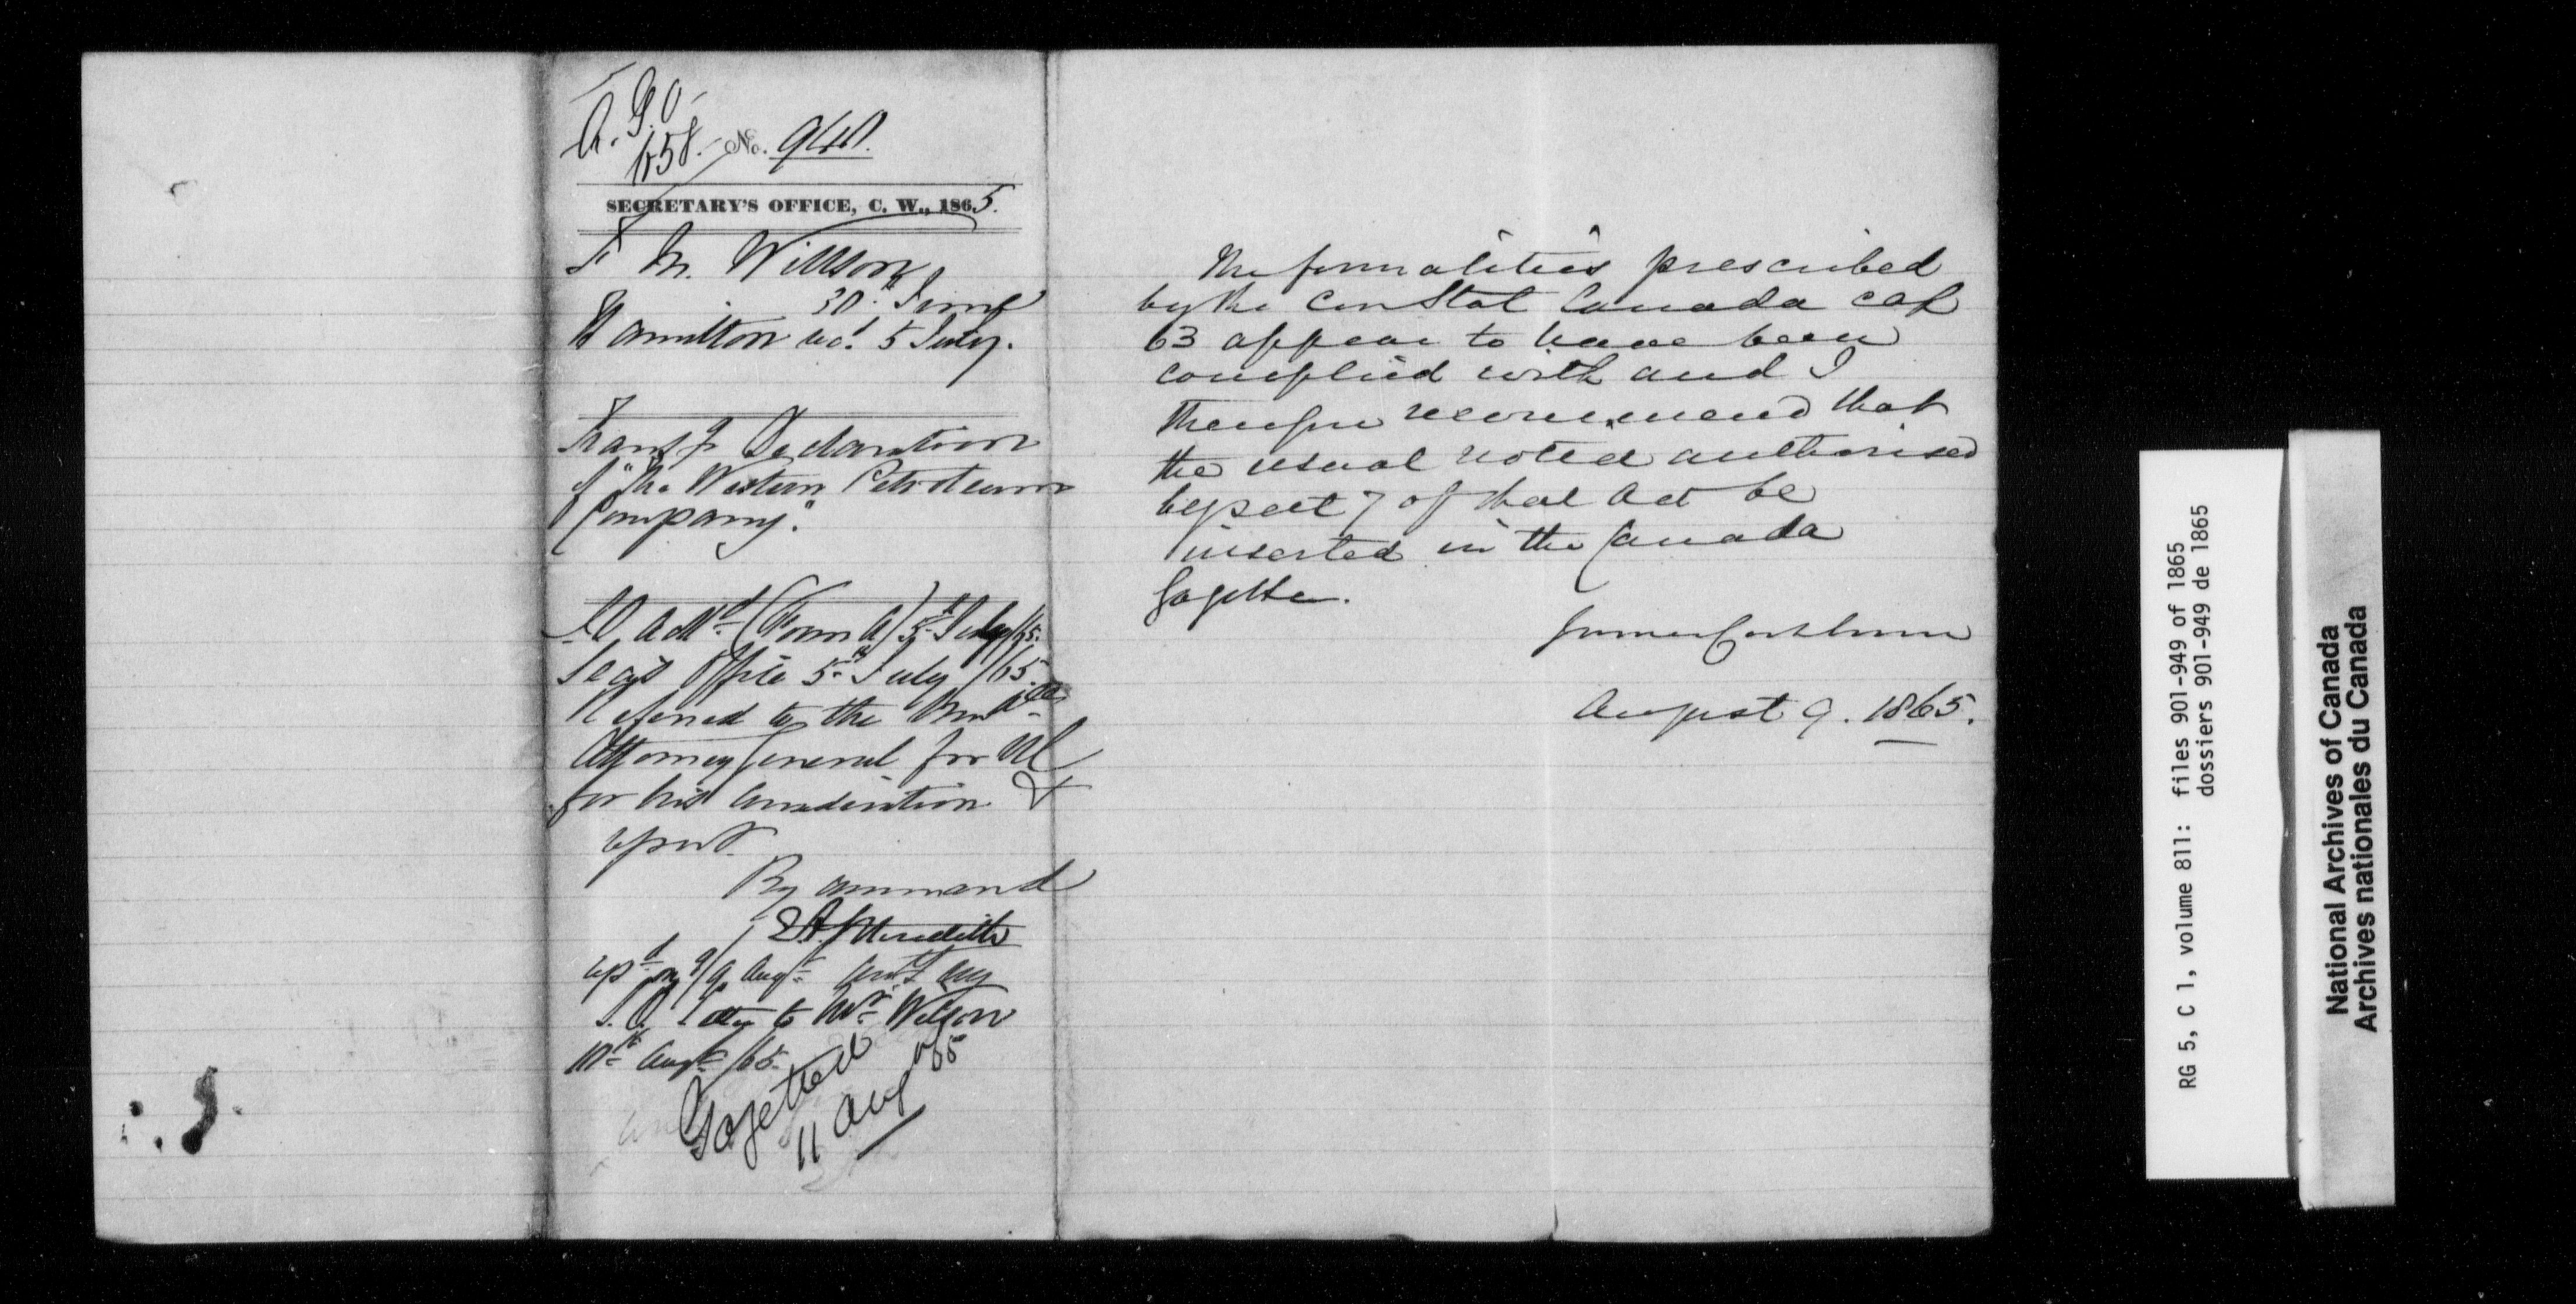 A. G. O.
658.
No. 940.
SECRETARY'S OFFICE, C. W., 1865.
F. M. Willson
30th June
Hamilton recd 5 July.
Transg Declaration
of "The Western Petroleum
Company".
Ackd (Form A) 5th July /65.
Secy's Office 5th July /65.
Referred to the Honble
Attorney General for UC
for his consideration &
report.
By command
E A Meredith
repd on 9 Augt
S. O. Letter to Mr Willson
10th Augt /65.
Gazetted
11 Aug /65
The formalities prescribed
by the Con Stat Canada cap
63 appear to have been
complied with and I
therefore recommend that
the usual notice authorised
by sect 7 of that Act be
inserted in the Canada
Gazette.
James Cockburn
August 9. 1865.
RG 5, C 1, volume 811: files 901-949 of 1865
dossiers 901-949 de 1865
National Archives of Canada
Archives nationales du Canada